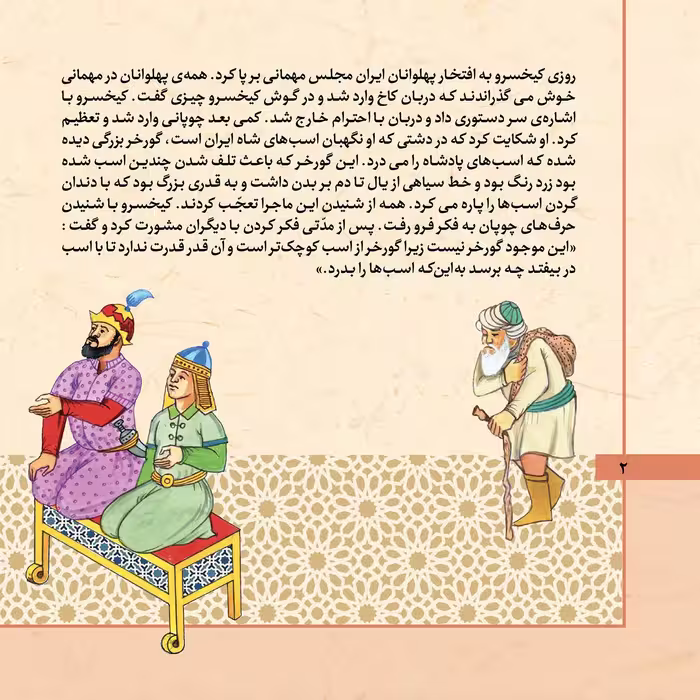 روزی کیخسرو به افتخار پهلوانان ایران مجلس مهمانی بر پا کرد. همه‌ی پهلوانان در مهمانی
خوش می گذراندند که دربان کاخ وارد شد و در گوش کیخسرو چیزی گفت. کیخسرو با
اشاره‌ی سر دستوری داد و دربان با احترام خارج شد. کمی بعد چوپانی وارد شد و تعظیم
کرد. او شکایت کرد که در دشتی که او نگهبان اسب‌های شاه ایران است، گورخر بزرگی دیده
شده که اسب‌های پادشاه را می درد. این گورخر که باعث تلف شدن چندین اسب شده
بود زرد رنگ بود و خط سیاهی از یال تا دم بر بدن داشت و به قدری بزرگ بود که با دندان
گردن اسب‌ها را پاره می کرد. همه از شنیدن این ماجرا تعجّب کردند. کیخسرو با شنیدن
حرف‌های چوپان به فکر فرو رفت. پس از مدّتی فکر کردن با دیگران مشورت کرد و گفت :
«این موجود گورخر نیست زیرا گورخر از اسب کوچک‌تر است و آن قدر قدرت ندارد تا با اسب
در بیفتد چه برسد به‌این‌که اسب‌ها را بدرد.»
۲